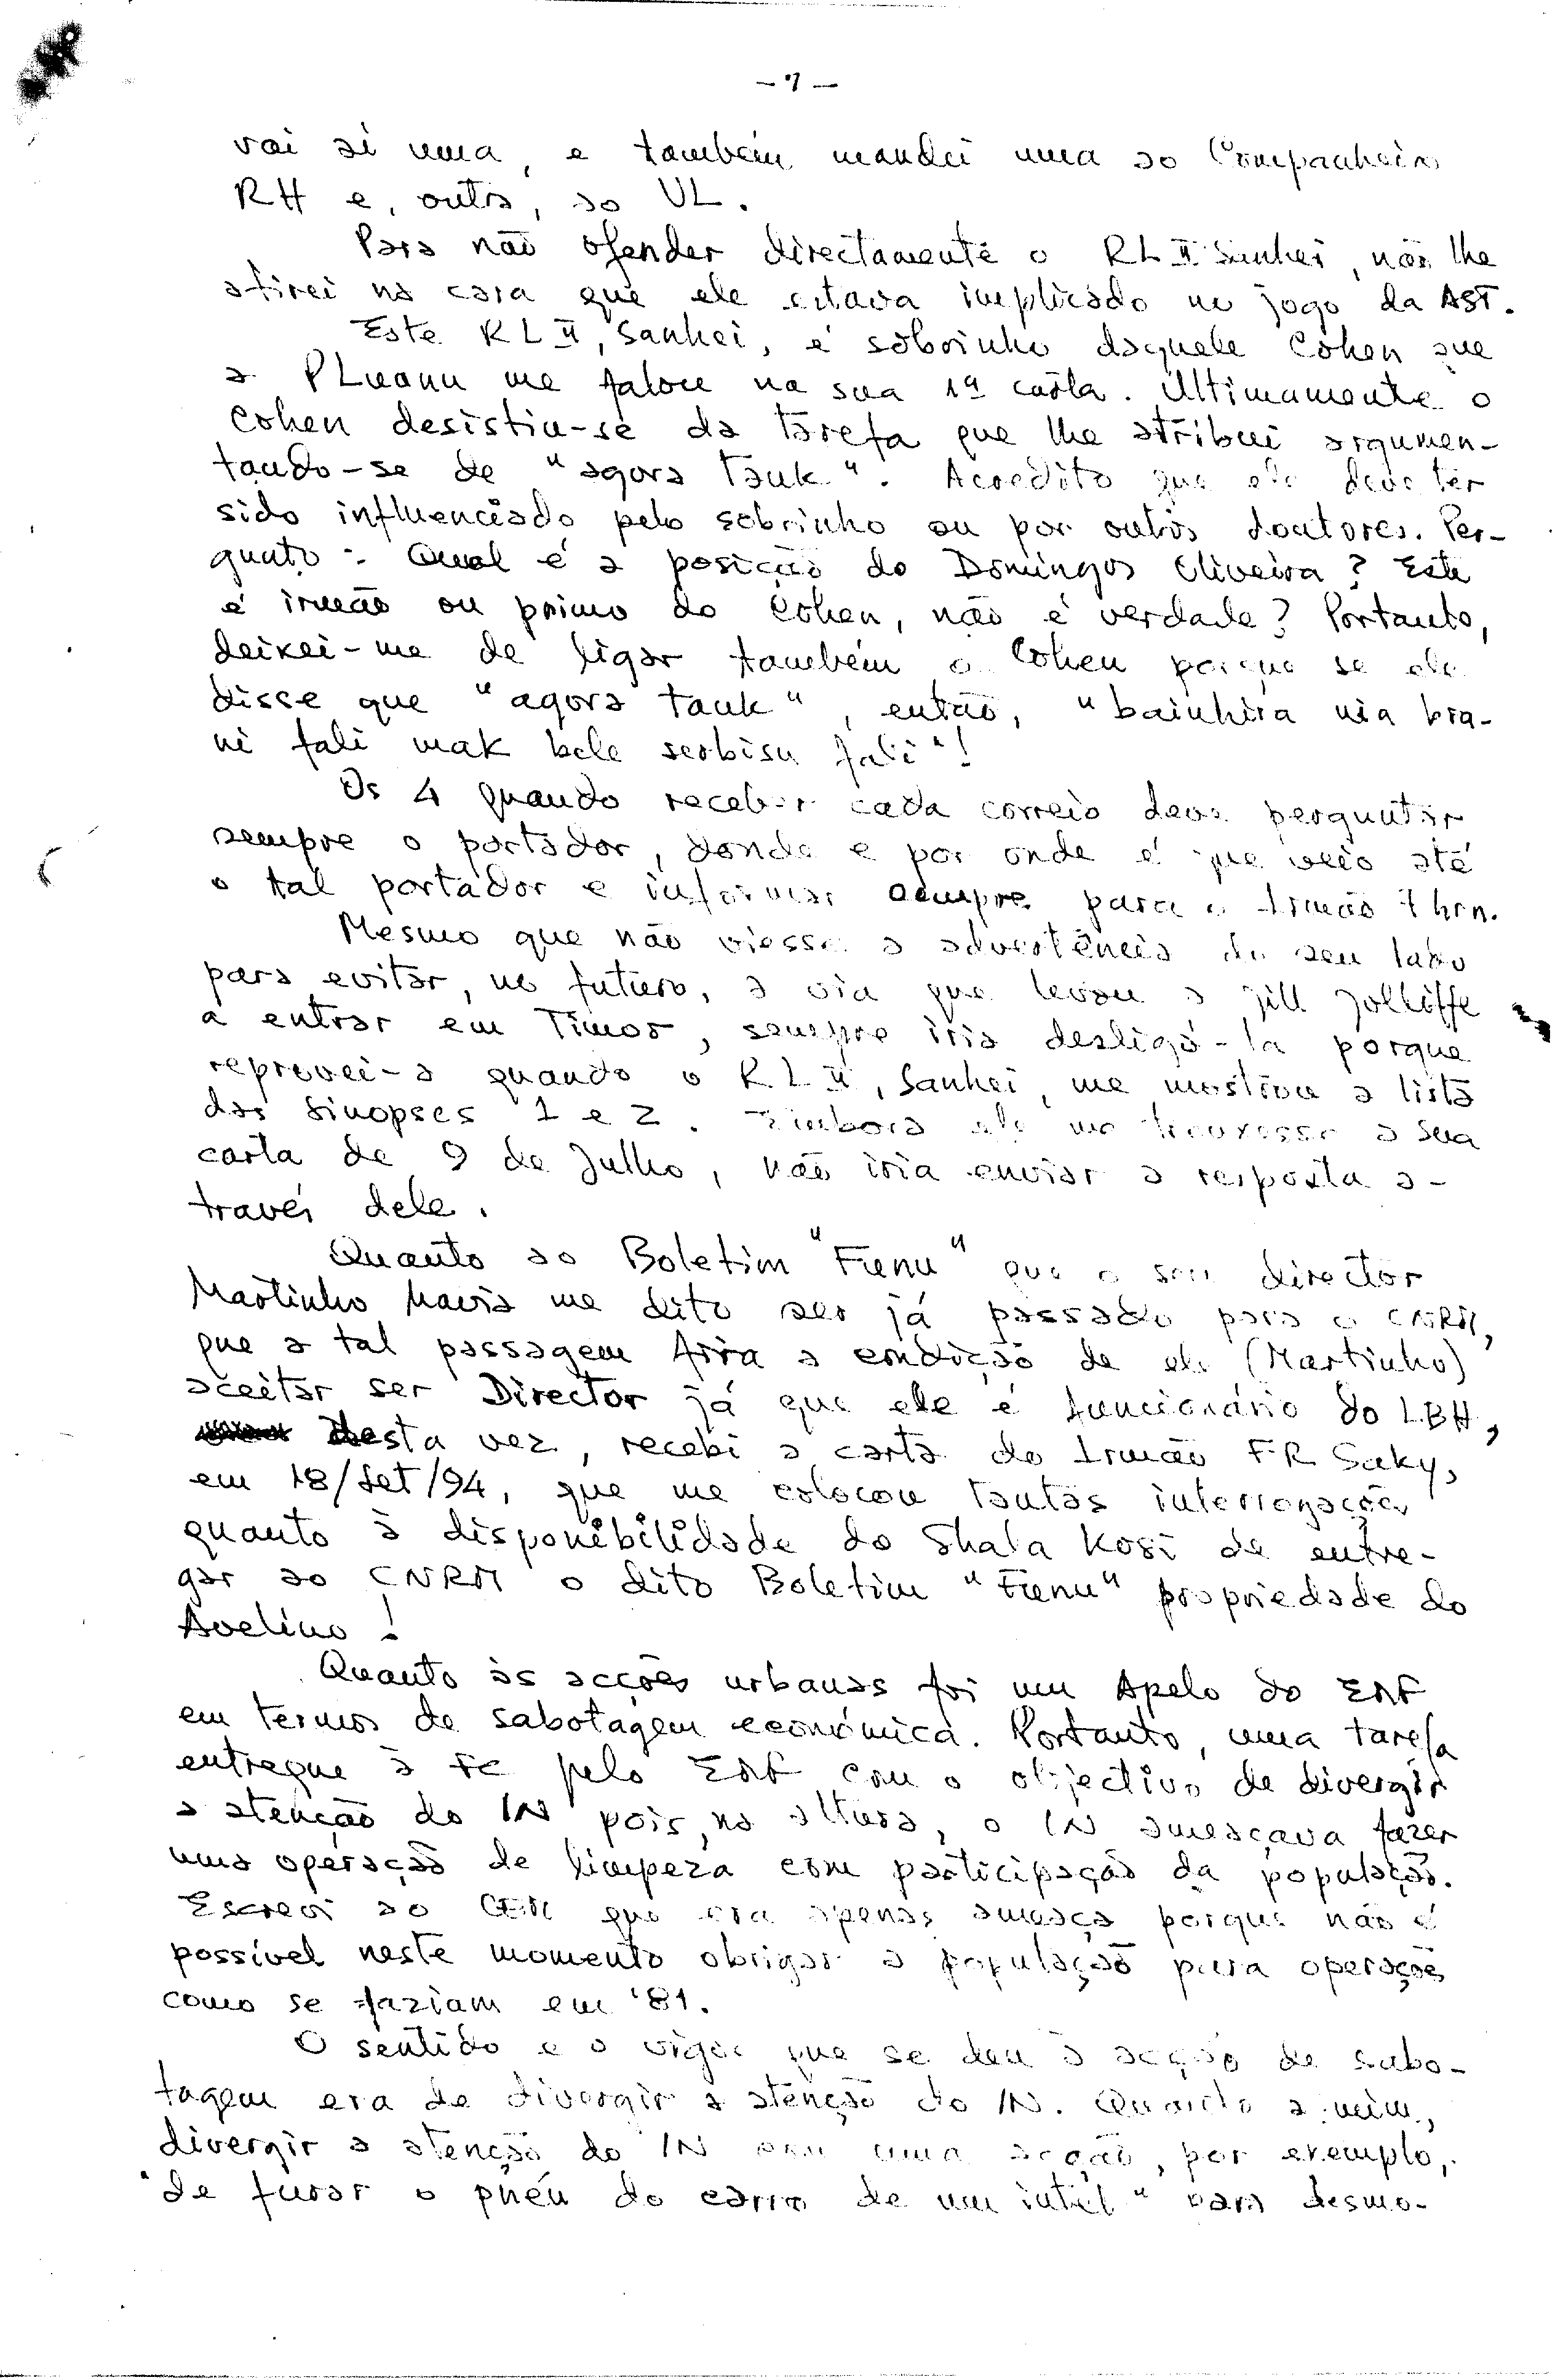 - 7 -
vai aí uma, e também mandei uma ao Companheiro
RH e, outra, ao UL.
Para não ofender directamente o RLII Sanhei, não lhe
atirei na cara que ele estava implicado no jogo da AST.
Este RLII, Sanhei, é sobrinho daquele Cohen que
a PLuanu me falou na sua 1ª carta. Ultimamente o
Cohen desistiu-se da tarefa que lhe atribui argumen-
tando-se de "agora tauk". Acredito que ele deve ter
sido influenciado pelo sobrinho ou por outros doutores. Per-
gunto: Qual é a posição do Domingos Oliveira? Este
é irmão ou primo do Cohen, não é verdade? Portanto,
deixei-me de ligar também o Cohen porque se ele
disse que "agora tauk", então, "bainhira nia bra-
ni fali mak bele serbisu fali"!
Os 4 quando receber cada correio deve perguntar
sempre o portador, donde e por onde é que veio até
o tal portador e informar sempre para o Irmão thrn.
Mesmo que não viesse a advertência do seu lado
para evitar, no futuro, a via que levou a Jill Jolliffe
a entrar em Timor, sempre iria desligá-la porque
reprovei-a quando o R.L II, Sanhei, me mostrou a lista
das sinopses 1 e 2. Embora ele me trouxesse a sua
carta de 9 de Julho, não iria enviar a resposta a-
través dele.
Quanto ao Boletim "Funu" que o seu director
Martinho havia me dito ser já passado para o CNRM,
que a tal passagem fora a condição de ele (Martinho)
aceitar ser Director já que ele é funcionário do LBH,
Desta vez, recebi a carta do Irmão FR Saky,
em 18/Set/94, que me colocou tantas interrogações
quanto à disponibilidade do Shala Kosi de entre-
gar ao CNRM o dito Boletim "Funu" propriedade do
Avelino!
Quanto às acções urbanas foi um Apelo do EMF
em termos de sabotagem económica. Portanto, uma tarefa
entregue à FC pelo EMF com o objectivo de divergir
a atenção do IN pois, na altura, o IN ameaçava fazer
uma operação de limpeza com participação da população.
Escrevi ao que era apenas ameaça porque não é
possível neste momento obrigar a população para operações
como se faziam em '81.
O sentido e o vigor que se deu à acção de sabo-
tagem era de divergir a atenção do IN. Quanto a mim,
divergir a atenção do IN com uma acção, por exemplo,
"de furar o pneu do carro de um intel" para desmo-